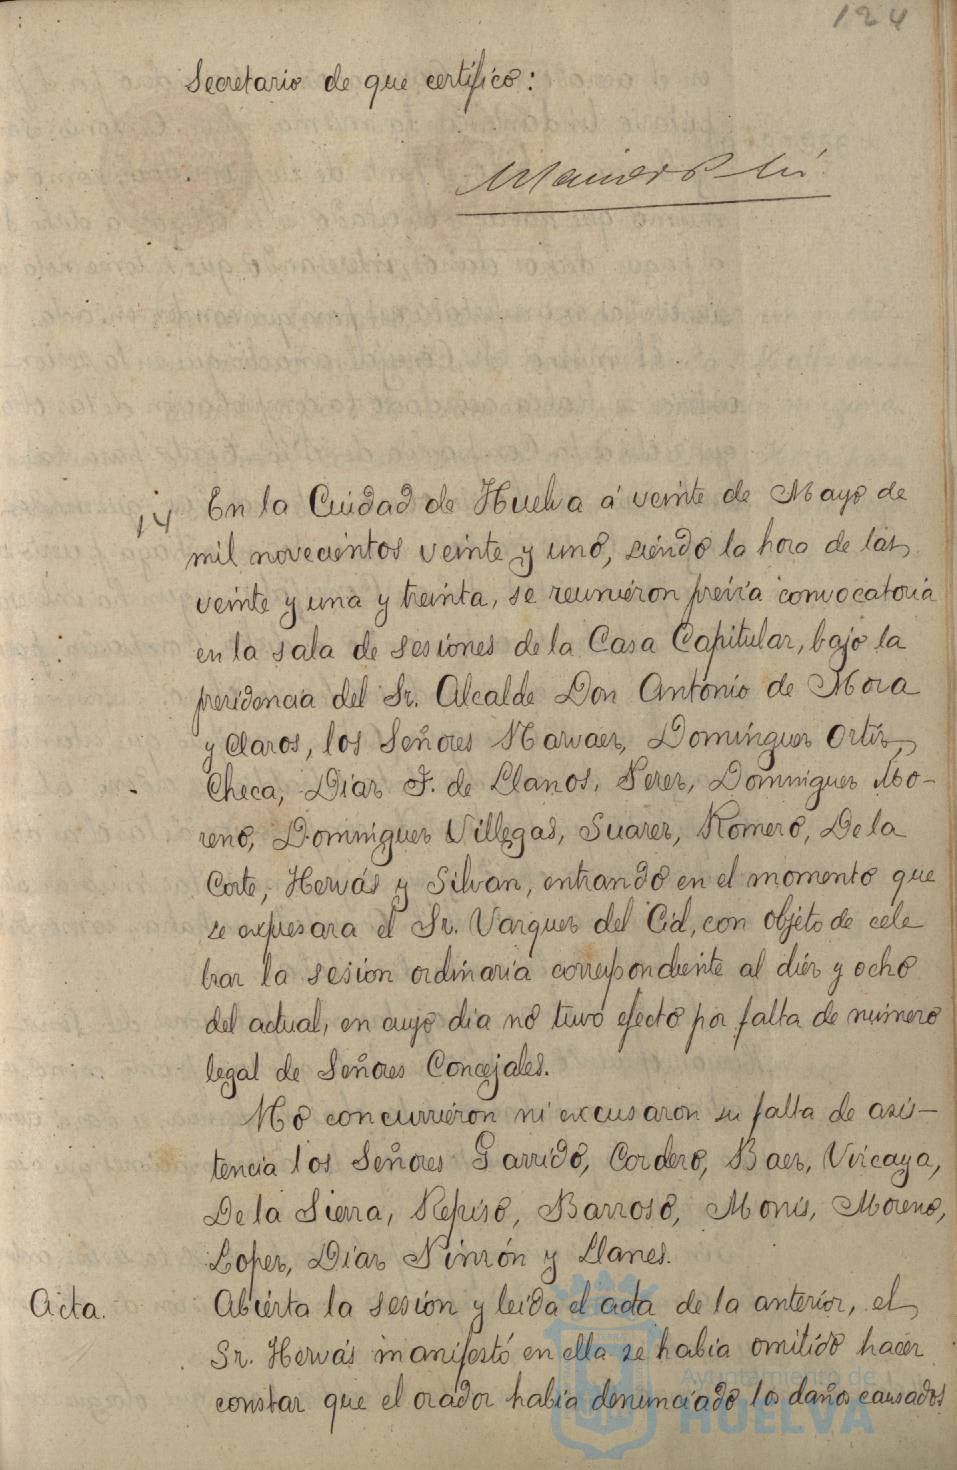 124
Secretario de que certifico:
14
En la Ciudad de Huelva á veinte de Mayo de
mil novecientos veinte y uno, siendo la hora de las
veinte y una y treinta, se reunieron previa convocatoria
en la sala de sesiones de la Casa Capitular, bajo la
presidencia del Sr. Alcalde Don Antonio de Mora
y Claros, los Señores Narvaez, Dominguez Ortiz,
Checa, Diaz F. de Llanos, Perez, Dominguez Mo-
reno, Dominguez Villegas, Suarez, Romero, De la
Corte, Hervás y Silvan, entrando en el momento que
se expresara el Sr. Vazquez del Cid, con objeto de cele
brar la sesion ordinaria correspondiente al diez y ocho
del actual, en cuyo dia no tuvo efecto por falta de numero
legal de Señores Concejales.
No concurrieron ni excusaron su falta de asis-
tencia los Señores Garrido, Cordero, Baez, Vizcaya,
De la Sierra, Repiso, Barroso, Monis, Moreno,
Lopez, Diaz Pinzón y Llanes.
Acta.
Abierta la sesión y leida el acta de la anterior, el
Sr. Hervás manifestó en ella se habia omitido hacer
constar que el orador habia denunciado los daños causados
Ayuntamiento de
HUELVA